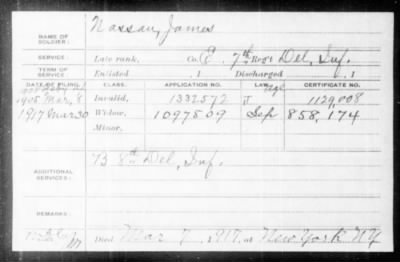 NAME OF SOLDIER: Nassau, James
SERVICE: Late rank, Co. E. 7th Reg't Del, Inf.
TERM OF SERVICE: Enlisted , 1 Discharged , 1
DATE OF FILING. CLASS. APPLICATION NO. LAW. CERTIFICATE NO.
1905 Mar, 8 Invalid, 1332572 J 1129,008
1917 Mar 30 Widow, 1097509 Sep 858,174
Minor,
ADDITIONAL SERVICES: B 8th Del, Inf.
REMARKS:
Died Mar 7, 1917, at New York NY